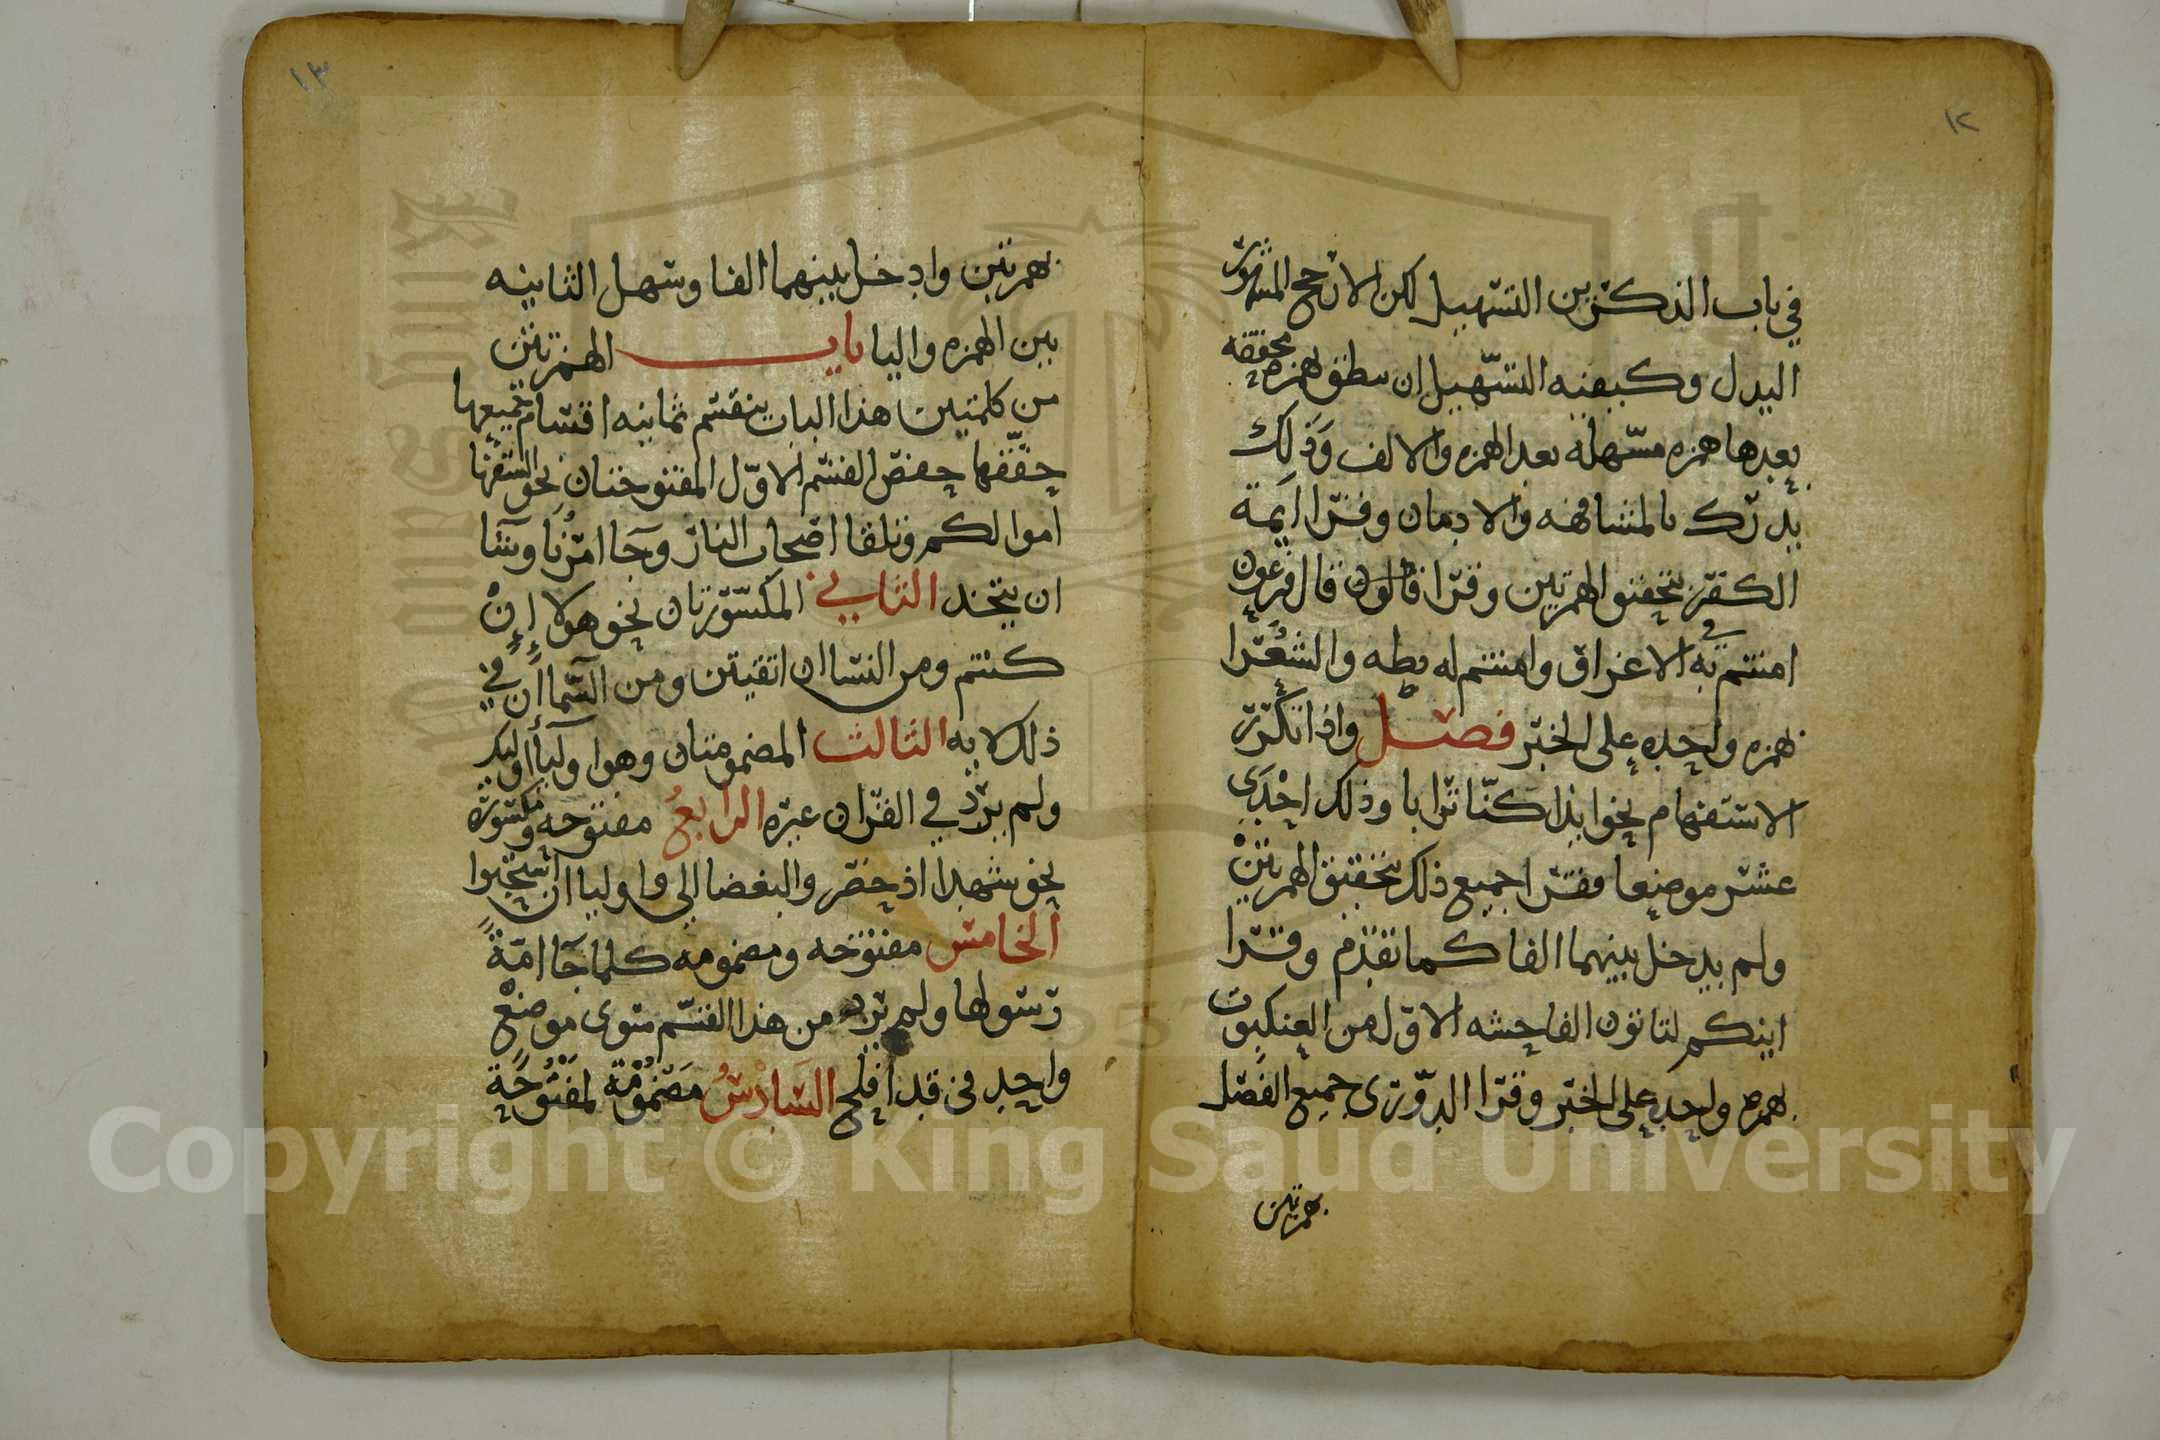 ١٢
في باب الذكرين التسهيل لكن الارجح المشهور
البدل وكيفيه التسهيل ان ينطق بهمزه محققه
بعدها همزه مسهله بعد الهمزه والالف وَذلك
يدرك بالمشافهه والادمان وقرا ايمة
الكفر بتحقيق الهمزتين وقرا قالون قال فرعون
امنتم به في الاعراف وامنتم له بطه والشُعَرا
بهمزه واحده على الخبر فصل واذا تكرر
الاستفهام نحو ايذا كنّا ترابا وذلك احْدَى
عشر موضعا فقرا جميع ذلك بتحقيق الهمزتين
ولم يدخل بينهما الفا كما تقدم وقرا
اينكم لتاتون الفاحشه الاوّل من العنكبوت
بهمزه واحده على الخبر وقرا الدّورى جميع الفَصْل
بهمزتين
١٣
بهمزتين وادخل بينهما الفا وسهل الثانيه
بين الهمزه واليا باب الهمزتين
من كلمتين هذا الباب ينقسم ثمانيه اقسام جميعها
حقّقها حفص القسم الاوّل المفتوحتان نحو السفها
اموالكم وتلقا اصحاب النار وجآ امرُنا وشآ
ان يتخذ الثاني المكسورتان نحو هولا إِنْ
كنتم ومن النسا ان اتقيتن ومن السّمآ ان في
ذلك لايه الثالث المضمومتان وهو اوليآ اوليك
ولم يرد في القران غيره الرابعُ مفتوحه ومكسوره
نحو شهدا اذ حضر والبغضا الى واوليا ان استحبوا
الخامس مفتوحه ومضمومه كلما جآ امّةً
رسولها ولم يرد من هذا القسم سوى موضعْ
واحد فى قد افلح السَادْسُ مَضْمُوْمَة لمفْتُوْحَةٍ
Copyright © King Saud University
King Saud University
1957